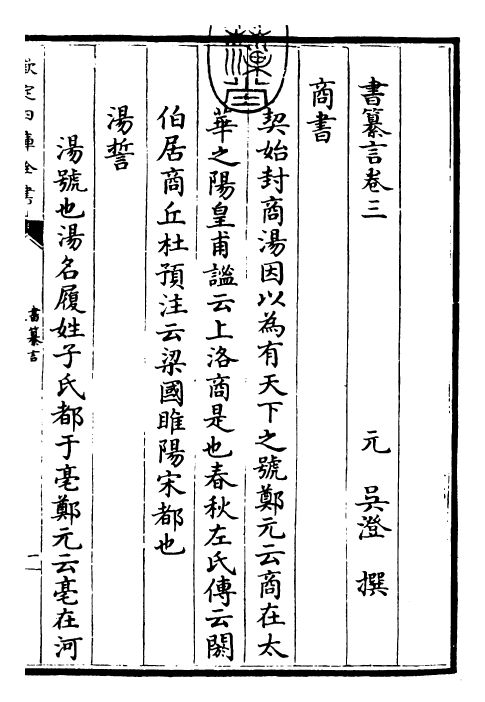 書纂言卷三
元 吳澄 撰
商書
契始封商湯因以為有天下之號鄭元云商在太
華之陽皇甫謐云上洛商是也春秋左氏傳云閼
伯居商丘杜預注云梁國睢陽宋都也
湯誓
湯號也湯名履姓子氏都于亳鄭元云亳在河
欽定四庫全書
書纂言